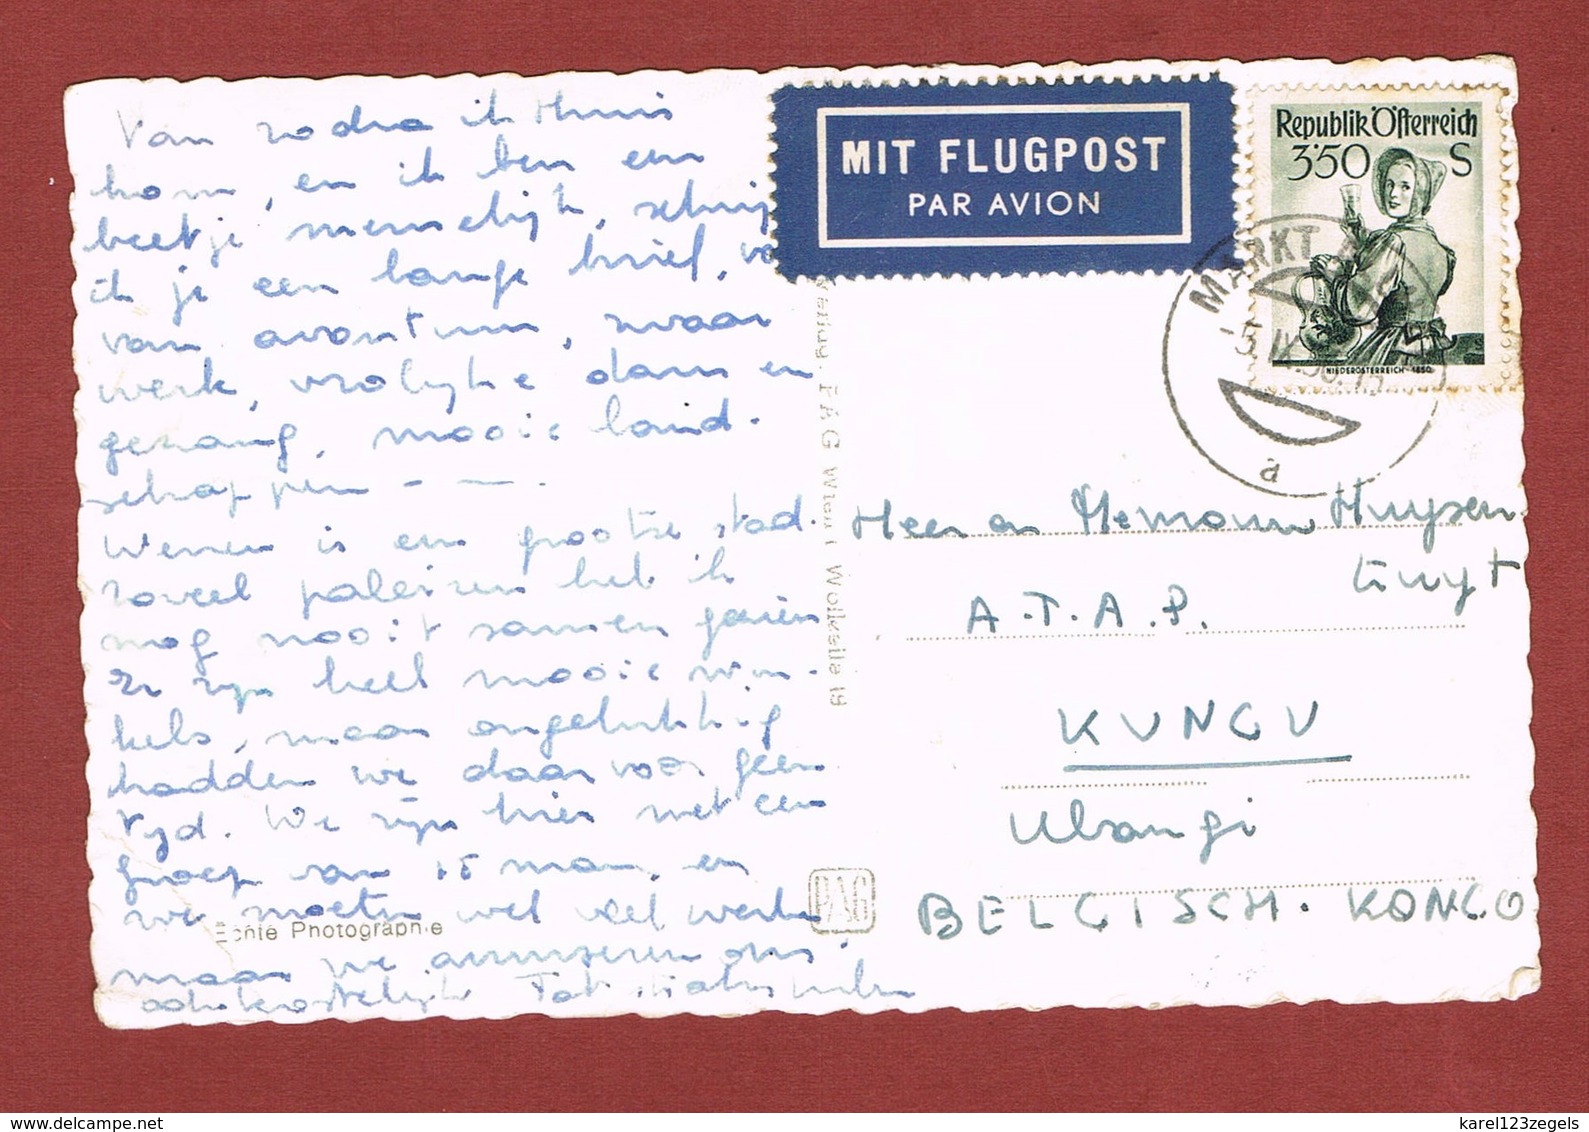 Van zodra ik thuis
kom, en ik ben een
beetje menselijk, schrijf
ik je een lange brief, vol
van avontuur, zwaar
werk, vrolijke dans en
gezang, mooie land-
schappen - - -.
Wenen is een grootse stad.
zoveel paleizen heb ik
nog nooit samen gezien
Er zijn heel mooie win-
kels, maar ongelukkig
hadden we daar voor geen
tijd. We zijn hier met een
groep van 15 man, en
we moeten wel veel werken
maar we amuseren ons
Tot
Echte Photographie
MIT FLUGPOST
PAR AVION
Republik Österreich
3'50 S
NIEDERÖSTERREICH-1850
MARKT
a
Verlag P.A.G. Wien
PAG
Heer en Mevrouw Huysen
A.T.A.P.
KUNGU
Ubangi
BELGISCH. KONGO
karel123zegels